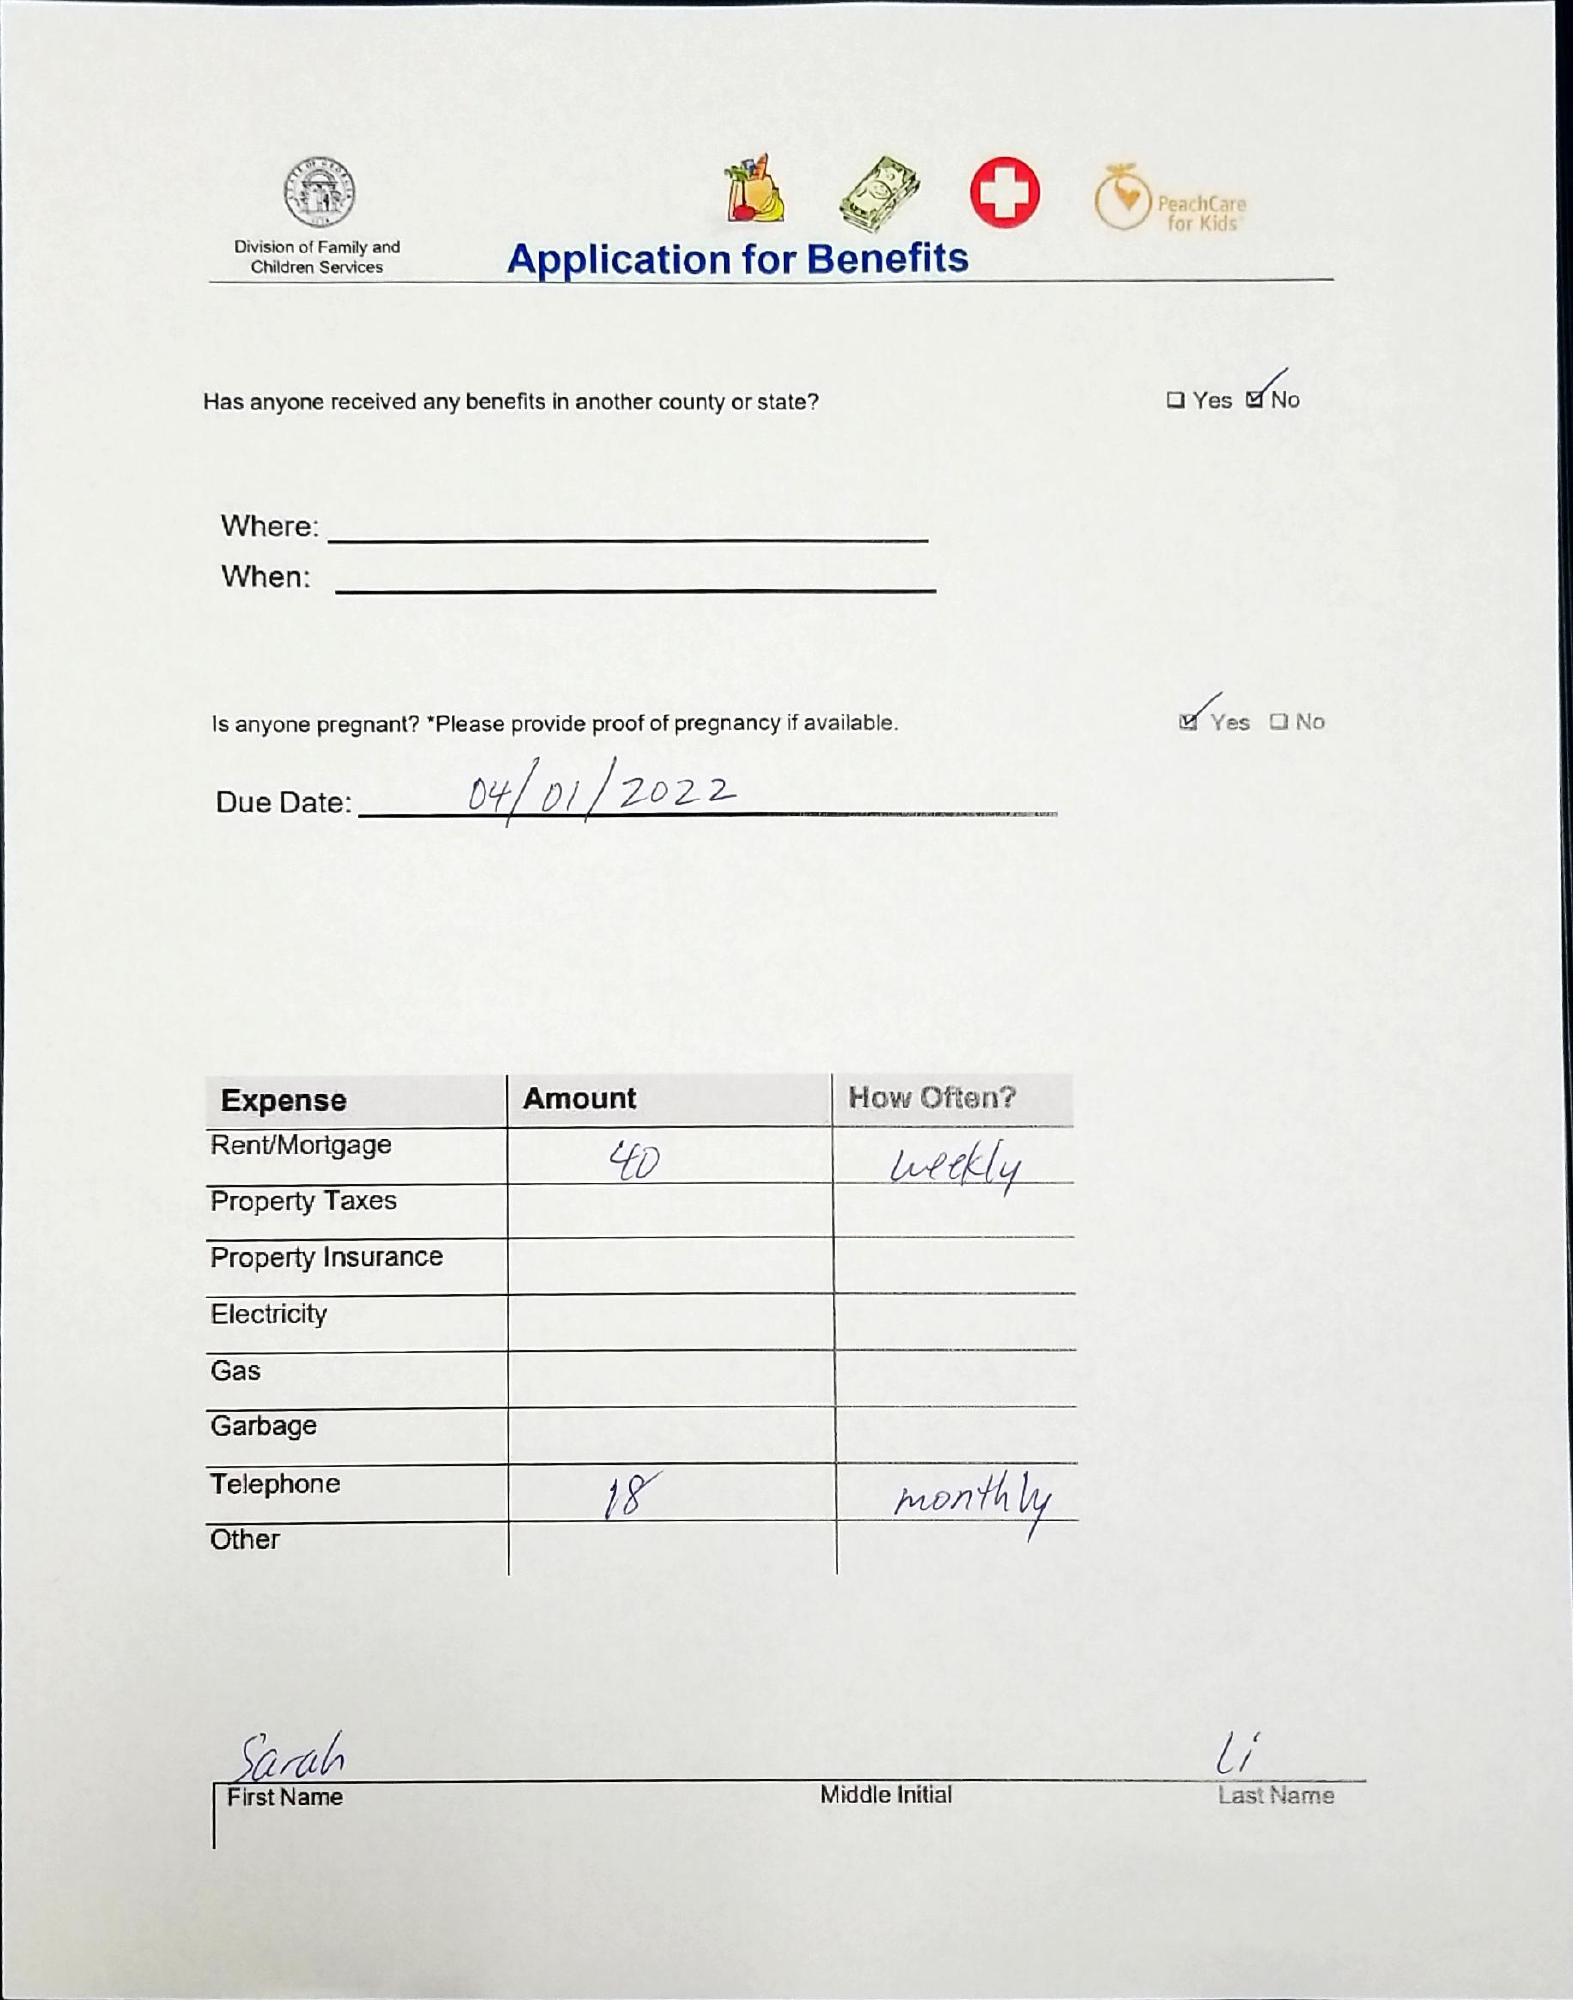 STATE OF GEORGIA
1776
Division of Family and
Children Services
Application for Benefits
PeachCare
for Kids
Has anyone received any benefits in another county or state? ☐ Yes ☑ No
Where:
When:
Is anyone pregnant? *Please provide proof of pregnancy if available. ☑ Yes ☐ No
Due Date: 04/01/2022
Expense Amount How Often?
Rent/Mortgage 40 weekly
Property Taxes
Property Insurance
Electricity
Gas
Garbage
Telephone 18 monthly
Other
Sarah Li
First Name Middle Initial Last Name